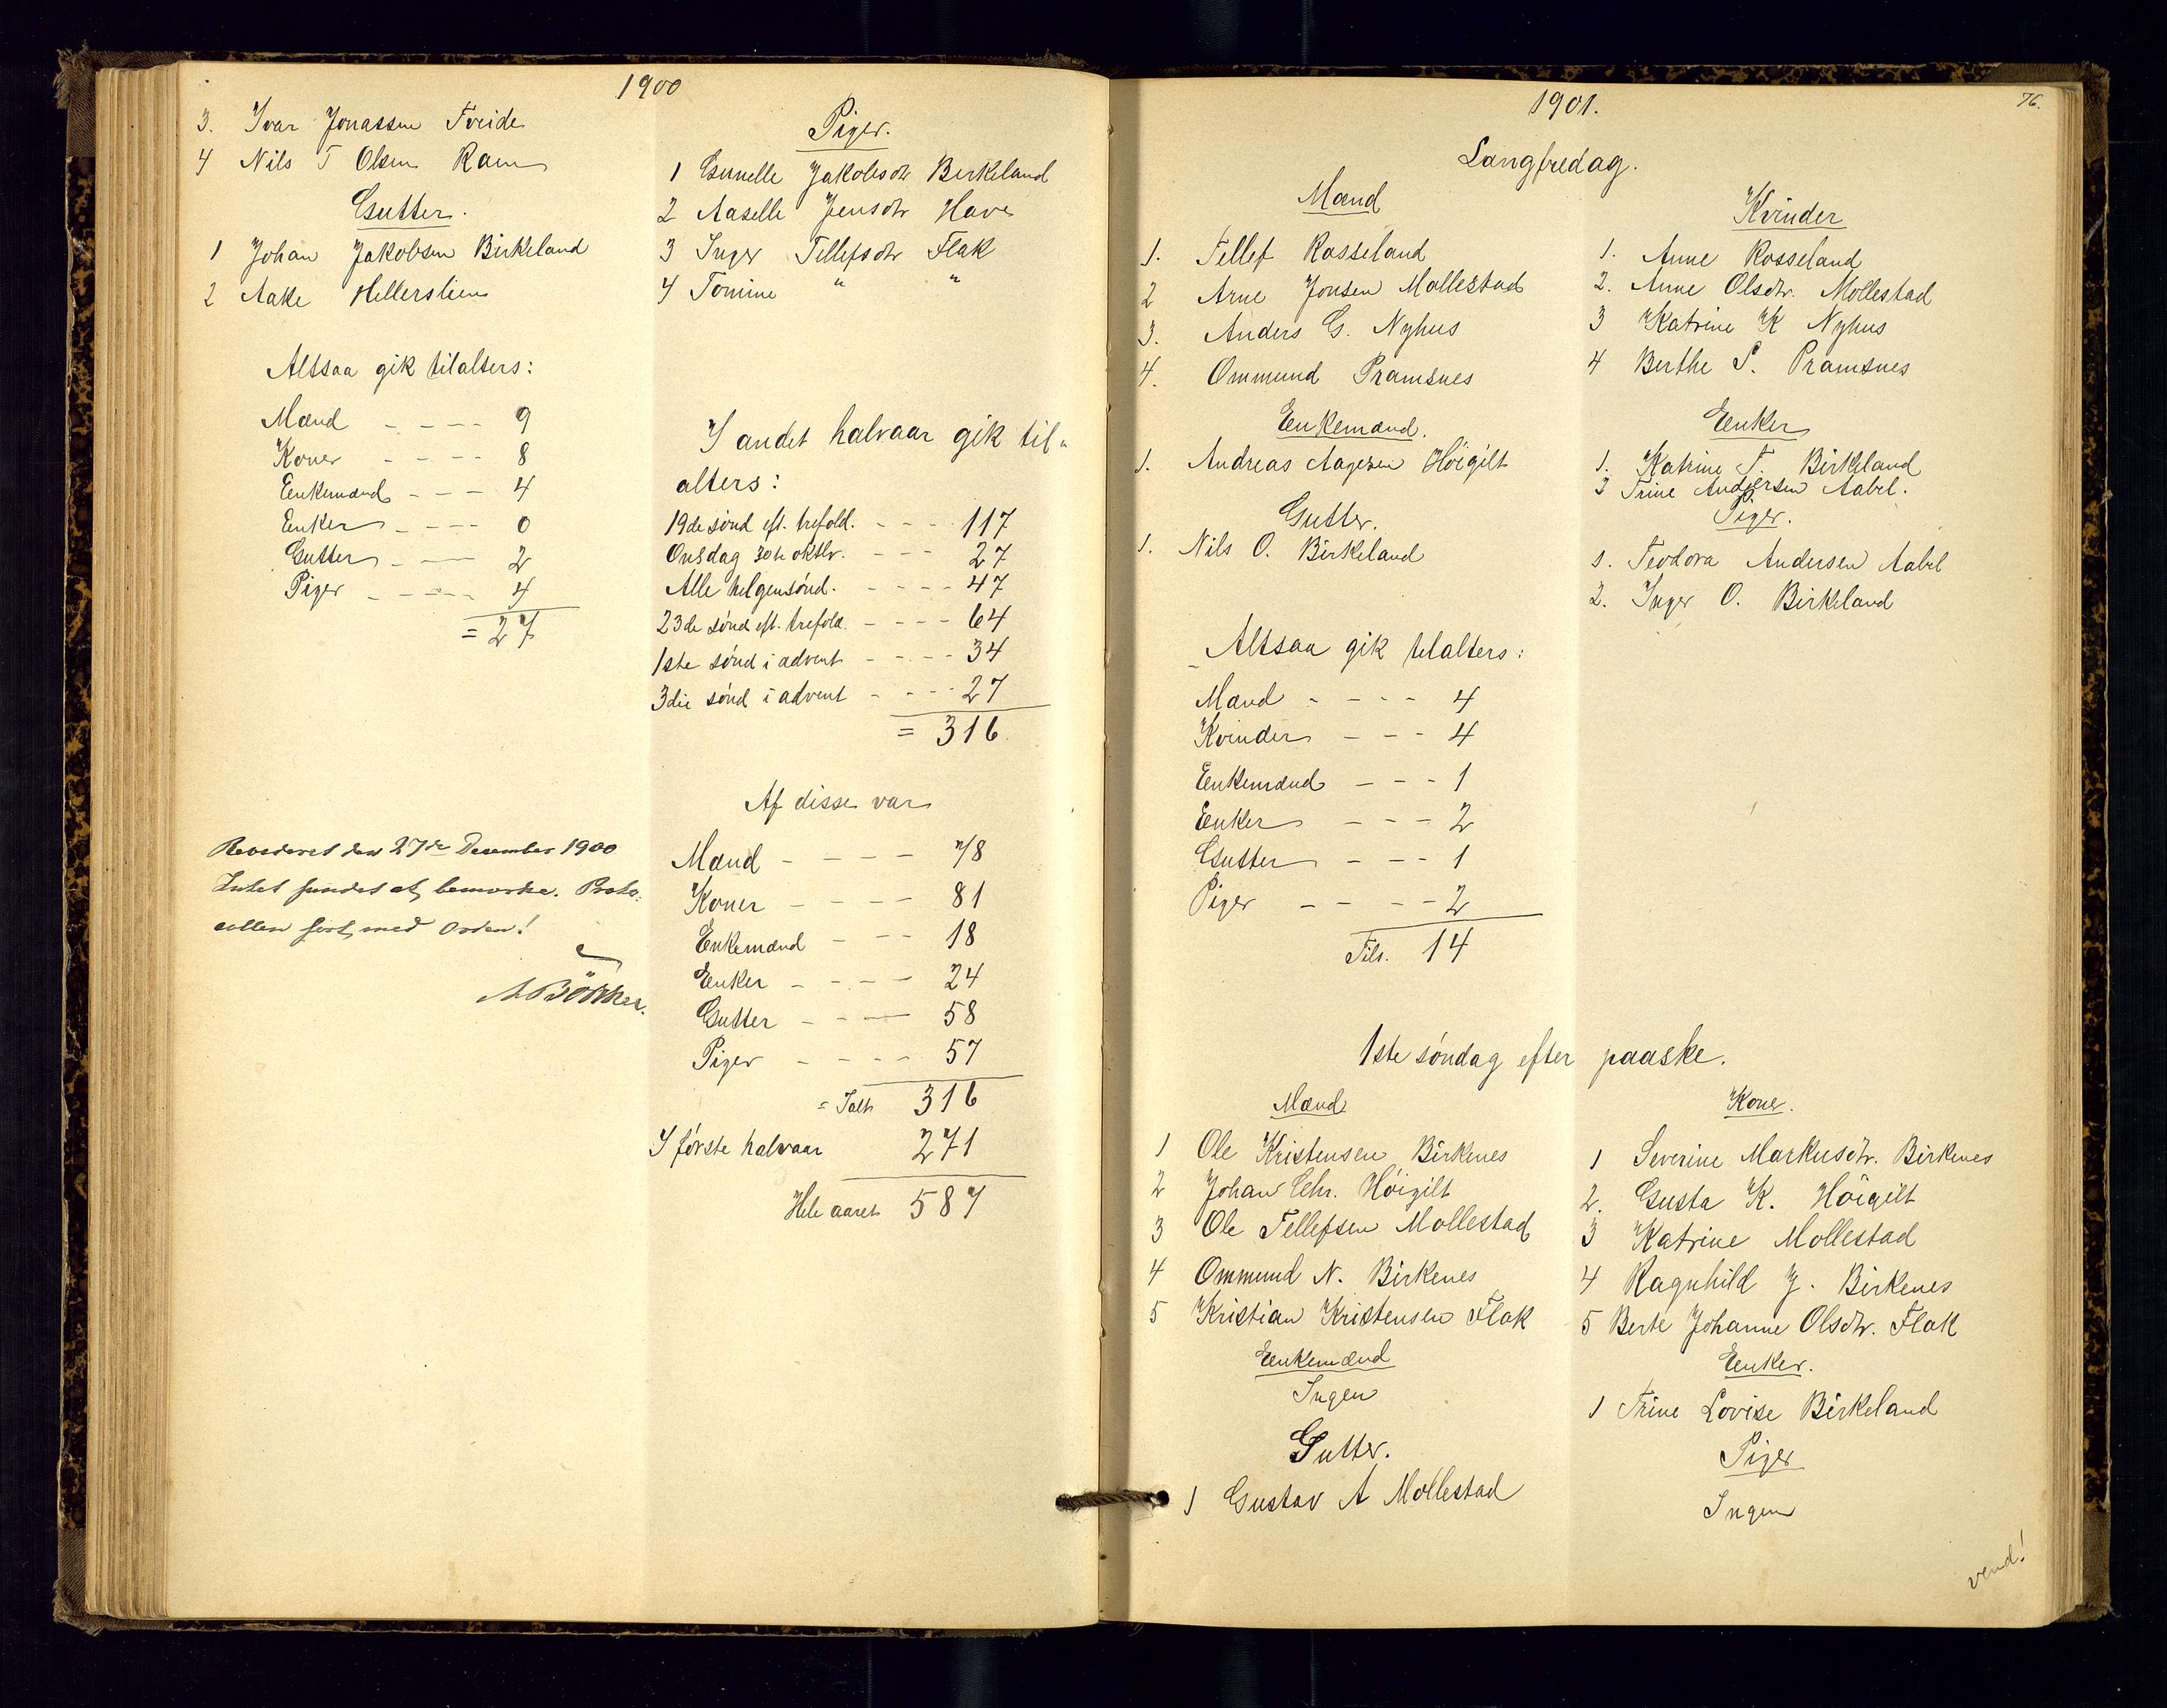 1900
3. Ivar Jonassen Tveide
4 Nils T Olsen Ram
Gutter.
1 Johan Jakobsen Birkeland
2 Aake Hellersliens
Altsaa gik tilalters:
Mænd - - - - 9
Koner - - - - 8
Eenkemænd - - - 4
Eenker - - - - 0
Gutter - - - 2
Piger - - - - 4
= 27
Revideret den 27de Desember 1900
Intet fundet at bemærke. Proto-
collen ført med Orden!
Piger.
1 Gunelle Jakobsdtr Birkeland
2 Aaselle Jensdtr Have
3 Inger Tellefsdtr Flak
4 Tomine " "
I andet halvaar gik til-
alters:
19de sønd eft. trefold. - - - 117
Onsdag 30te oktbr. - - - 27
Alle helgensønd. - - - - 47
23de sønd eft. trefold. - - - - 64
1ste sønd i advent - - - - 34
3die sønd i advent - - - - 27
= 316
Af disse var
Mænd - - - - 78
Koner - - - - 81
Enkemænd - - - 18
Eenker - - - - 24
Gutter - - - 58
Piger - - - - 57
= Ialt 316
I første halvaar 271
Hele aaret 587
76.
1901.
Langfredag.
Mænd
1. Tellef Rosseland
2 Arne Jonsen Mollestad
3. Anders G. Nyhus
4. Ommund Pramsnes
Eenkemænd.
1. Andreas Aagesen Höigilt
Gutter.
1. Nils O. Birkeland
Kvinder
1. Anne Rosseland
2. Anne Olsdtr. Mollestad
3 Katrine K Nyhus
4 Berthe S. Pramsnes
Eenker
1. Katrine T. Birkeland
2 Trine Andersen Aabel.
Piger.
1. Teodora Andersen Aabel
2. Inger O. Birkeland
Altsaa gik tilalters:
Mænd - - - - 4
Kvinder - - - 4
Eenkemænd - - - 1
Eenker - - - 2
Gutter - - - 1
Piger - - - - 2
Tils. 14
1ste søndag efter paaske.
Mænd
1 Ole Kristensen Birkenes
2 Johan Chr. Höigilt
3 Ole Tellefsen Mollestad
4 Ommund N. Birkenes
5 Kristian Kristensen Flak
Eenkemænd
Ingen
Gutter.
1 Gustav A Mollestad
Koner.
1 Severine Markusdtr. Birkenes
2. Gusta K. Höigilt
3 Katrine Mollestad
4 Ragnhild J. Birkenes
5 Berte Johanne Olsdtr. Flak
Eenker.
1 Trine Lovise Birkeland
Piger
Ingen
vend!